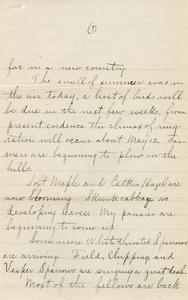 (7)
far in a new country.
The smell of summer was in
the air today, a host of birds will
be due in the next few weeks, from
present evidence the climax of mig-
ration will occur about May 12. Far-
mers are beginning to plow on the
hills.
Soft Maple and Hazel are
now blooming. Skunk cabbage is
developing leaves. My pansies are
beginning to come up.
Some more White throated Sparrows
are arriving. Field, Chipping and
Vesper Sparrows are singing a great deal.
Most of the fellows are back